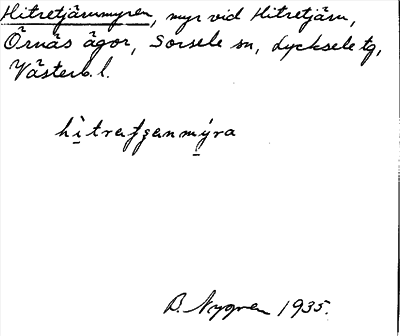 Hitretjärnmyren, myr vid Hitretjärn,
Örnäs ägor, Sorsele sn, Lycksele tg,
Västerb. l.
hìtrafʒanmýra
B. Nygren 1935.